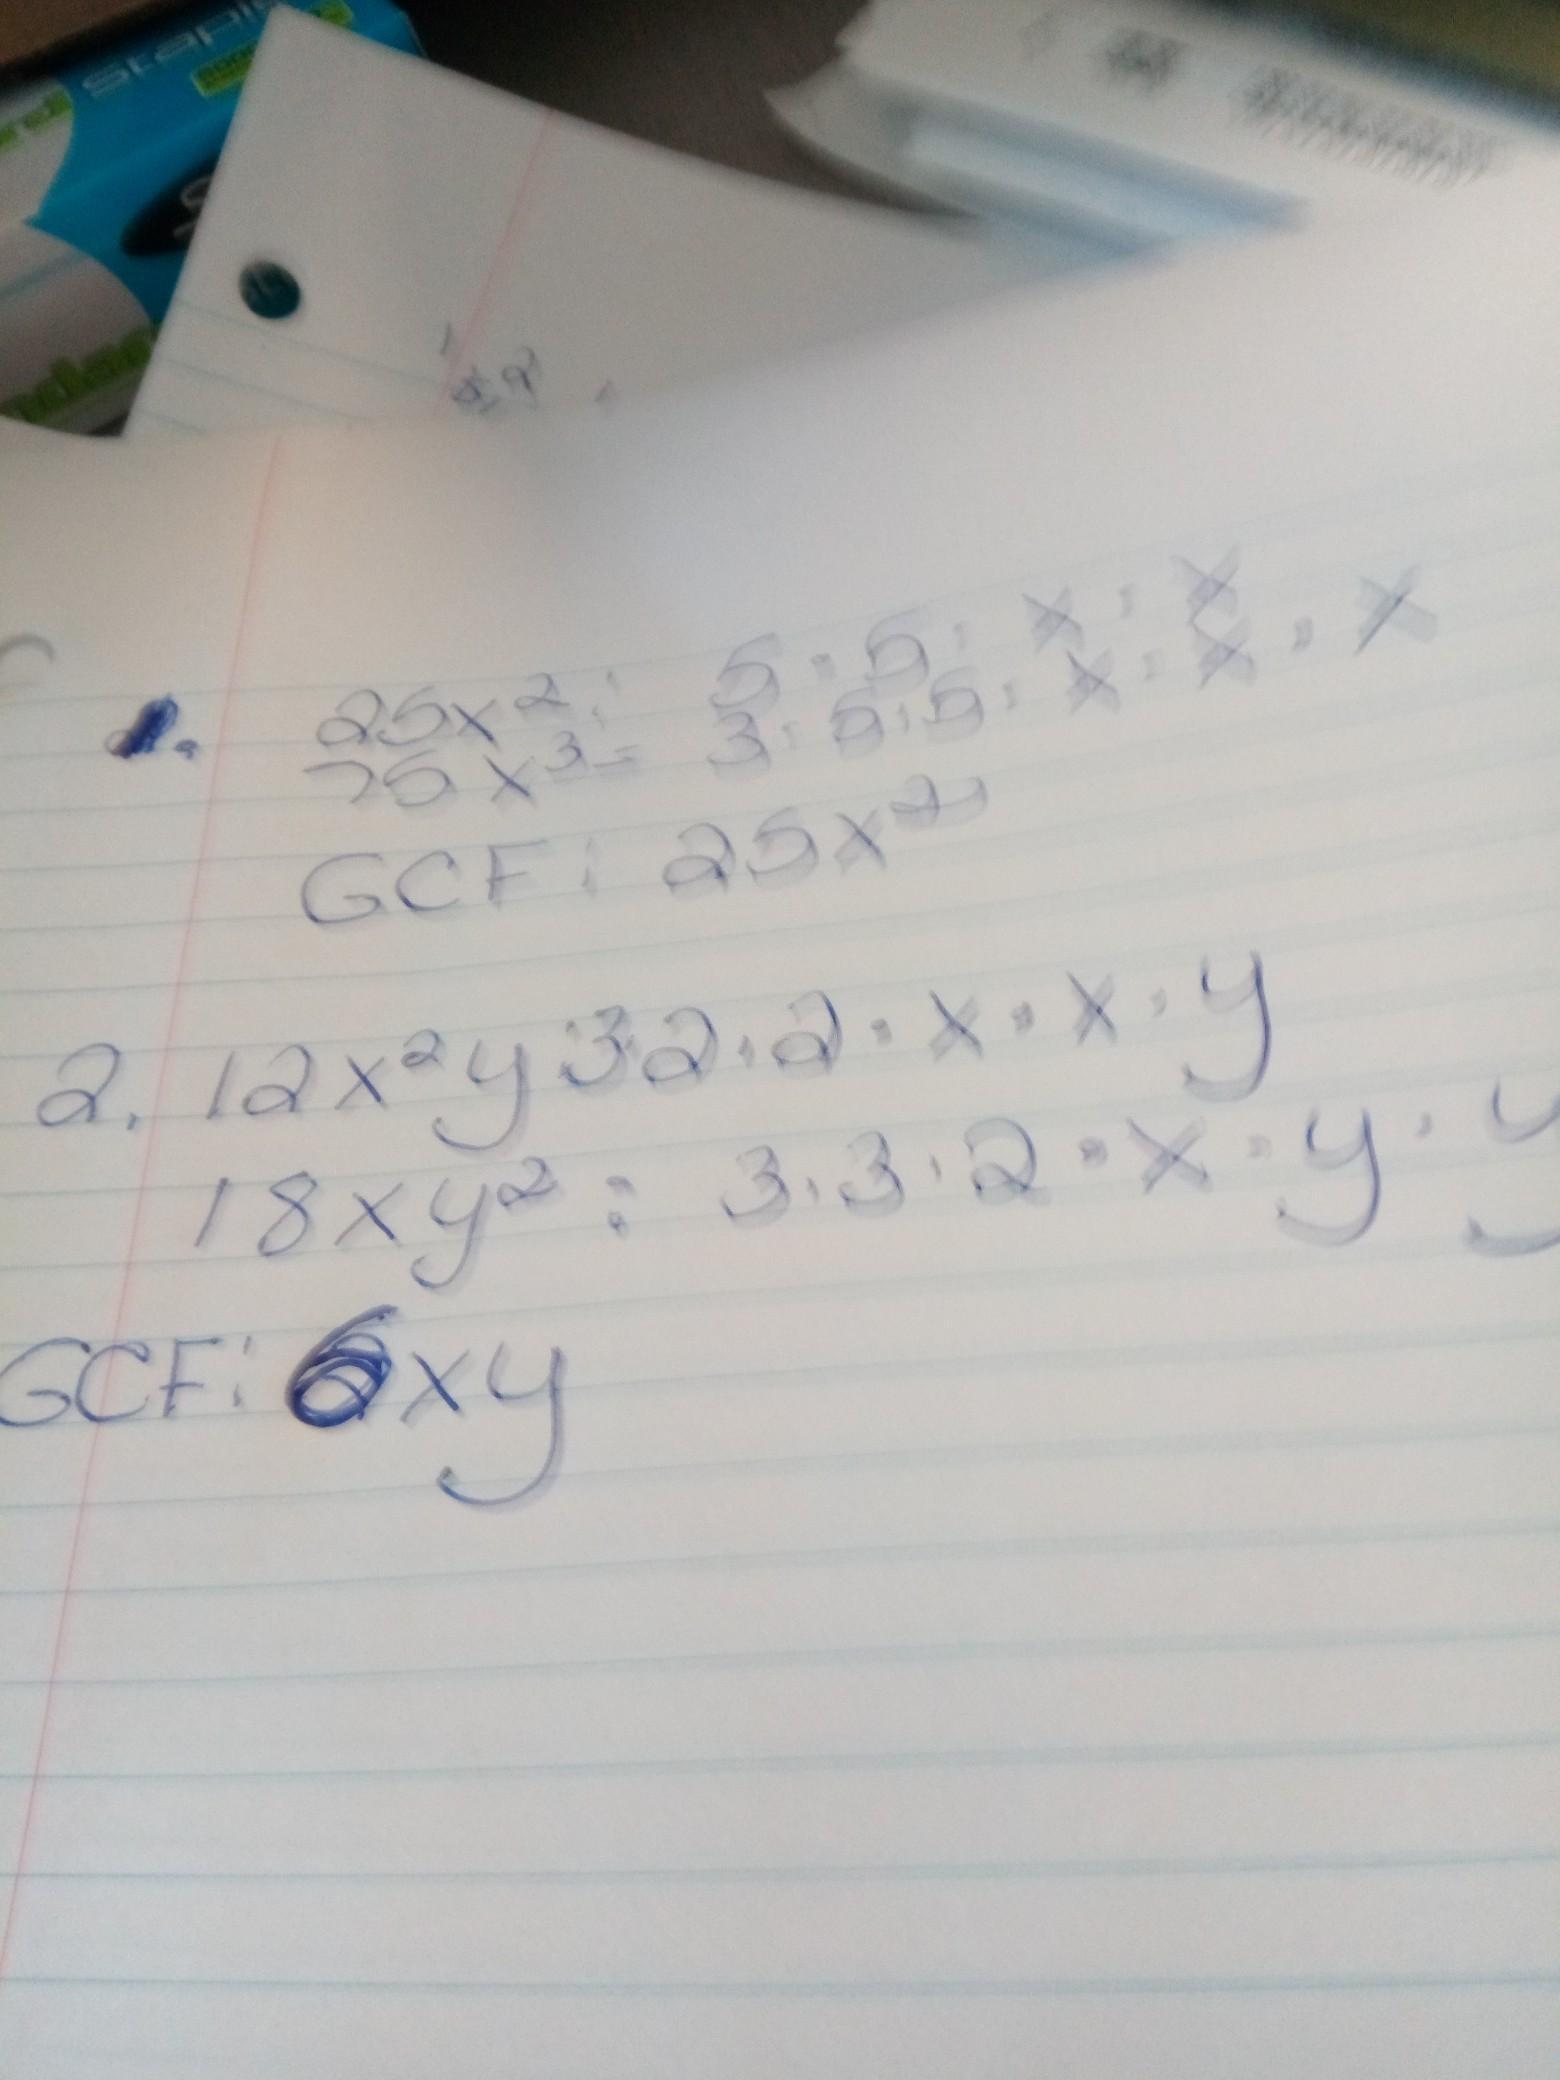 staple
1. 25x²: 5·5·x·x
75x³= 3·5·5·x·x·x
GCF: 25x²
2. 12x²y:3·2·2·x·x·y
18xy²: 3·3·2·x·y·y
GCF: 6xy